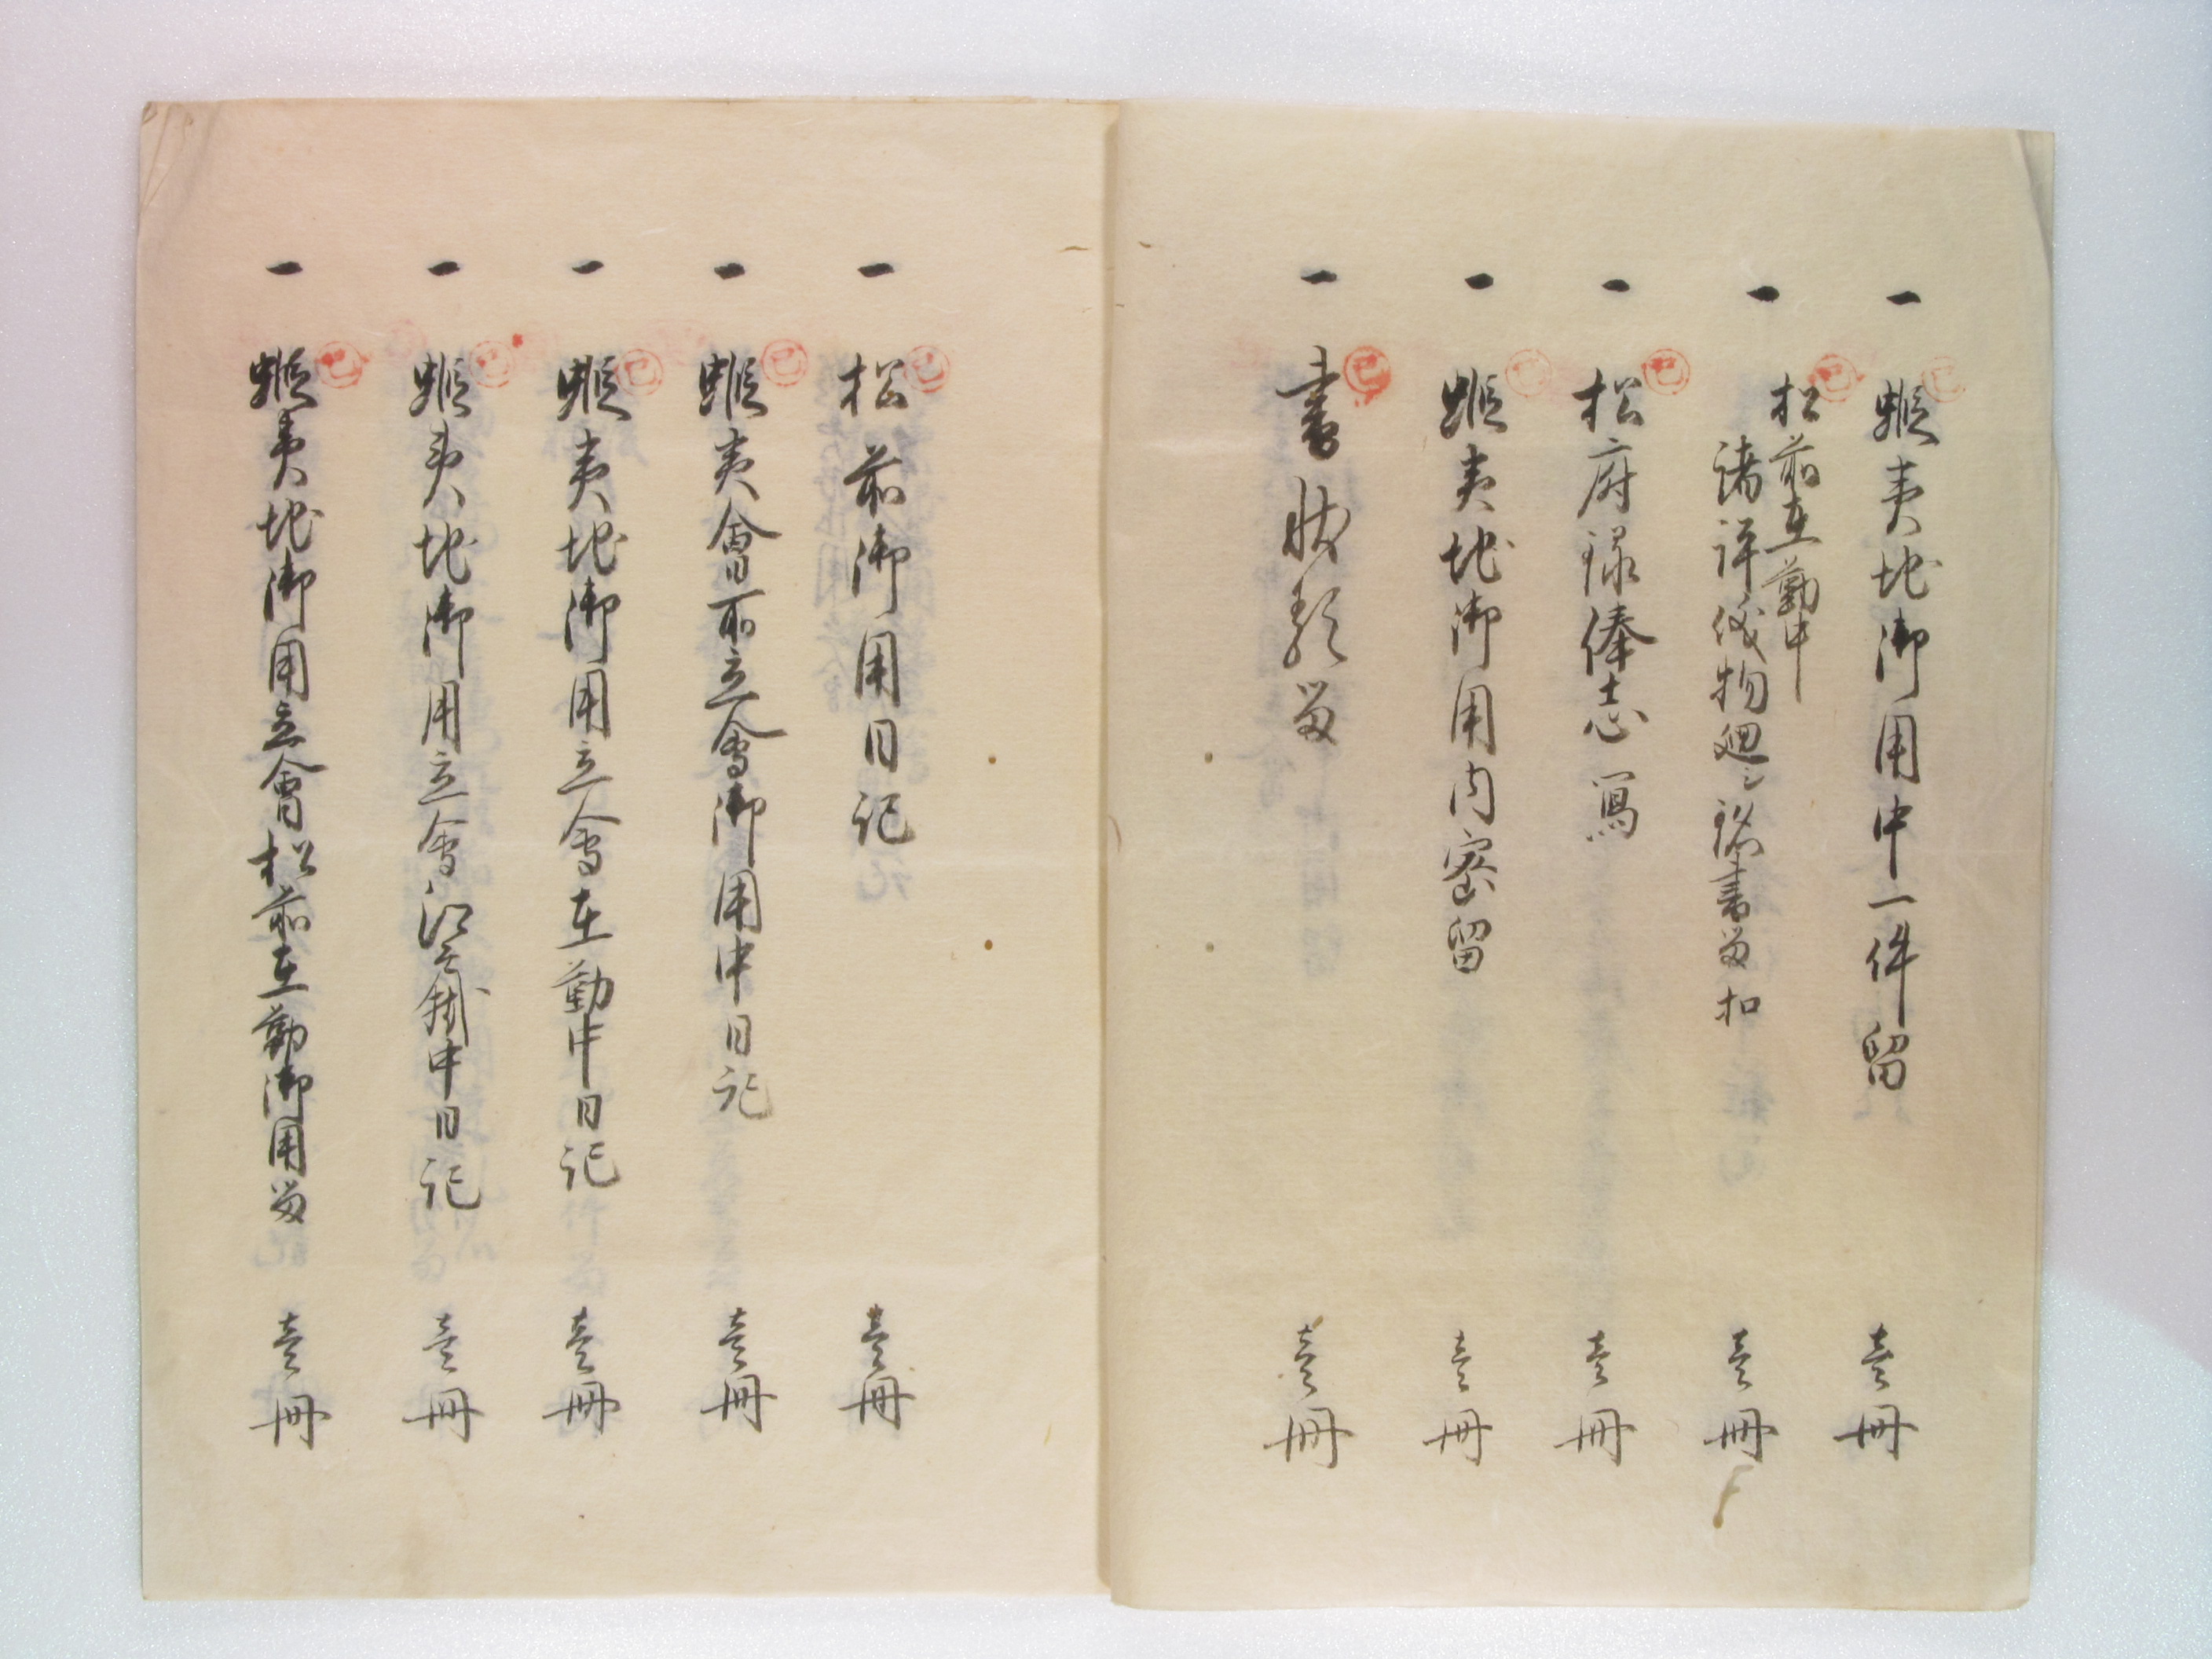 一 蝦夷地御用中一件留 壱冊
一 松前在勤中
諸評儀物廻シ銘書留扣 壱冊
一 松府録俸志寫 壱冊
一 蝦夷地御用内密留 壱冊
一 書状類留 壱冊
一 松前御用日記 壱冊
一 蝦夷會所立會御用中日記 壱冊
一 蝦夷地御用立會在勤中日記 壱冊
一 蝦夷地御用立會江戸掛中日記 壱冊
一 蝦夷地御用立會松前在勤御用留 壱冊